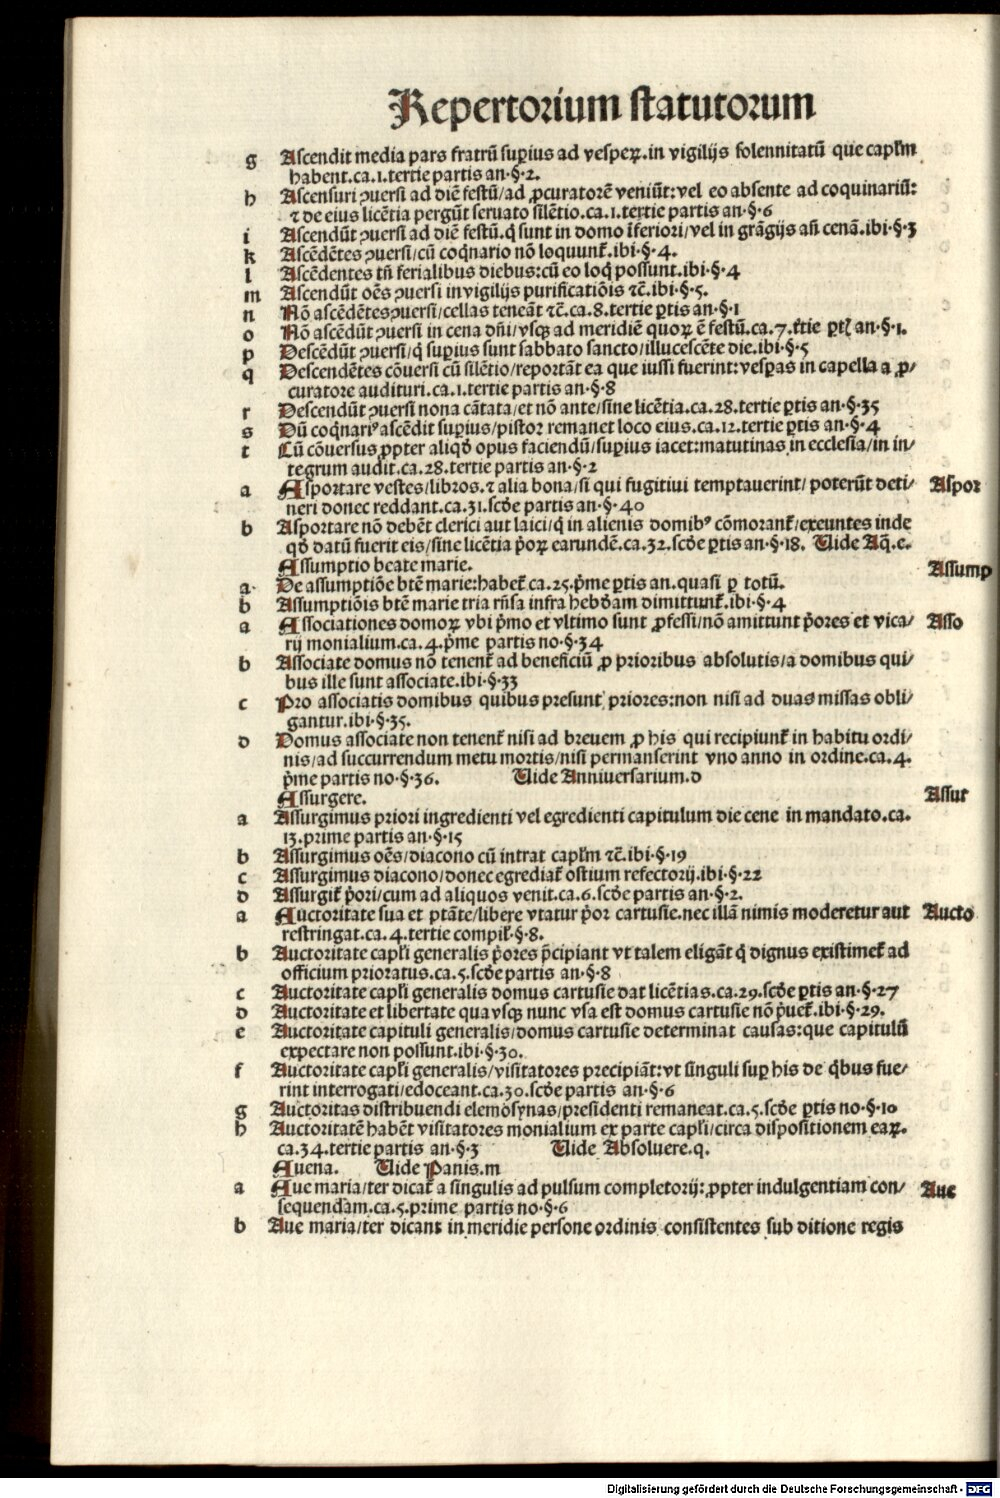 Repertorium statutorum
g Ascendit media pars fratrũ supius ad vesperꝝ.in vigilijs solennitatũ que caplm
habent.ca.1.tertie partis an·§·2.
h Ascensuri ꝯuersi ad diẽ festũ/ad ꝓcuratorẽ veniũt:vel eo absente ad coquinariũ:
⁊ de eius licẽtia pergũt seruato silẽtio.ca.1.tertie partis an·§·6
i Ascendũt ꝯuersi ad diẽ festũ.q̃ sunt in domo ĩferiori/vel in grãgijs añ cenã.ibi·§·3
k Ascẽdẽtes ꝯuersi/cũ coq̃nario nõ loquunt̃.ibi·§·4.
l Ascẽdentes tñ ferialibus diebus:cũ eo loq̃ possunt.ibi·§·4
m Ascendũt oẽs ꝯuersi in vigilijs purificatiõis ⁊c̃.ibi·§·5.
n Nõ ascẽdẽtes ꝯuersi/cellas teneãt ⁊c̃.ca.8.tertie ꝑtis an·§·1
o Nõ ascẽdũt ꝯuersi in cena dñi/vsqꝫ ad meridiẽ quoꝝ ẽ festũ.ca.7.t̃tie ꝑtꝭ an·§·1.
p Descẽdũt ꝯuersi/q̃ supius sunt sabbato sancto/illucescẽte die.ibi·§·5
q Descendẽtes cõuersi cũ silẽtio/reportãt ea que iussi fuerint:vesꝑas in capella a ꝓ/
curatore audituri.ca.1.tertie partis an·§·8
r Descendũt ꝯuersi nona cãtata/et nõ ante/sine licẽtia.ca.28.tertie ꝑtis an·§·35
s Dũ coq̃nariꝰ ascẽdit supius/pistor remanet loco eius.ca.12.tertie ꝑtis an·§·4
t Cũ cõuersus ꝓpter aliqđ opus faciendũ/supius iacet:matutinas in ecclesia/in in/
tegrum audit.ca.28.tertie partis an·§·2
a Asportare vestes/libros.⁊ alia bona/si qui fugitiui temptauerint/poterũt deti/ Aspor
neri donec reddant.ca.31.scđe partis an·§·40
b Asportare nõ debẽt clerici aut laici/q̃ in alienis domibꝰ cõmorant̃/exeuntes inde
qđ datũ fuerit eis/sine licẽtia p̃oꝝ earundẽ.ca.32.scđe ꝑtis an·§·18. Uide Aq̃.e.
Assumptio beate marie. Assump
a De assumptiõe btẽ marie:habet̃ ca.25.p̃me ꝑtis an.quasi ꝑ totũ.
b Assumptiõis btẽ marie tria rñsa infra hebđam dimittunt̃.ibi·§·4
a Associationes domoꝝ vbi p̃mo et vltimo sunt ꝓfessi/nõ amittunt p̃ores et vica/ Asso
rij monialium.ca.4.p̃me partis no·§·34
b Associate domus nõ tenent̃ ad beneficiũ ꝓ prioribus absolutis/a domibus qui/
bus ille sunt associate.ibi·§·33
c Pro associatis domibus quibus presunt priores:non nisi ad duas missas obli/
gantur.ibi·§·35.
d Domus associate non tenent̃ nisi ad breuem ꝓ his qui recipiunt̃ in habitu ordi/
nis/ad succurrendum metu mortis/nisi permanserint vno anno in ordine.ca.4.
p̃me partis no·§·36. Uide Anniuersarium.d
Assurgere. Assur
a Assurgimus priori ingredienti vel egredienti capitulum die cene in mandato.ca.
13.prime partis an·§·15
b Assurgimus oẽs/diacono cũ intrat caplm ⁊c̃.ibi·§·19
c Assurgimus diacono/donec egrediat̃ ostium refectorij.ibi·§·22
d Assurgit̃ p̃ori/cum ad aliquos venit.ca.6.scđe partis an·§·2.
a Auctoritate sua et ptãte/libere vtatur p̃or cartusie.nec illã nimis moderetur aut Aucto
restringat.ca.4.tertie compil̃·§·8.
b Auctoritate capli generalis p̃ores p̃cipiant vt talem eligãt q̃ dignus existimet̃ ad
officium prioratus.ca.5.scđe partis an·§·8
c Auctoritate capli generalis domus cartusie dat licẽtias.ca.29.scđe ꝑtis an·§·27
d Auctoritate et libertate qua vsqꝫ nunc vsa est domus cartusie nõ p̃uet̃.ibi·§·29.
e Auctoritate capituli generalis/domus cartusie determinat causas:que capitulũ
expectare non possunt.ibi·§·30.
f Auctoritate capli generalis/visitatores precipiãt:vt singuli sup his de q̃bus fue/
rint interrogati/edoceant.ca.30.scđe partis an·§·6
g Auctoritas distribuendi elemosynas/presidenti remaneat.ca.5.scđe ꝑtis no·§·10
h Auctoritatẽ habẽt visitatores monialium ex parte capli/circa dispositionem eaꝝ.
ca.34.tertie partis an·§·3 Uide Absoluere.q.
Auena. Uide Panis.m
a Aue maria/ter dicat̃ a singulis ad pulsum completorij:ꝓpter indulgentiam con/ Aue
sequendam.ca.5.prime partis no·§·6
b Aue maria/ter dicant in meridie persone ordinis consistentes sub ditione regis
Digitalisierung gefördert durch die Deutsche Forschungsgemeinschaft - DFG